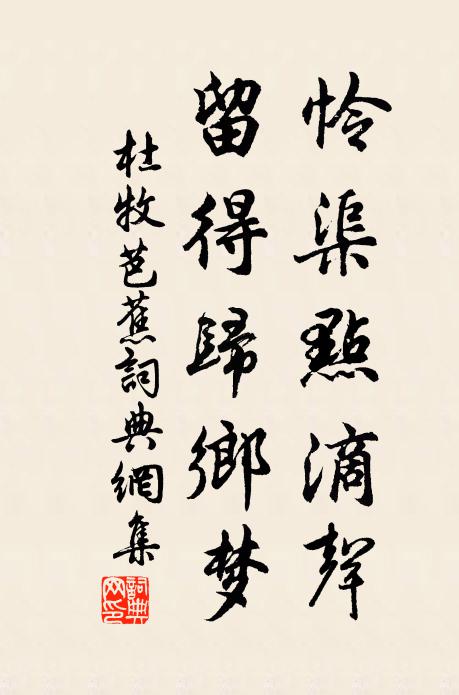 怜渠點滴聲
留得歸鄉梦
杜牧芭蕉詞典網集
詞典网印